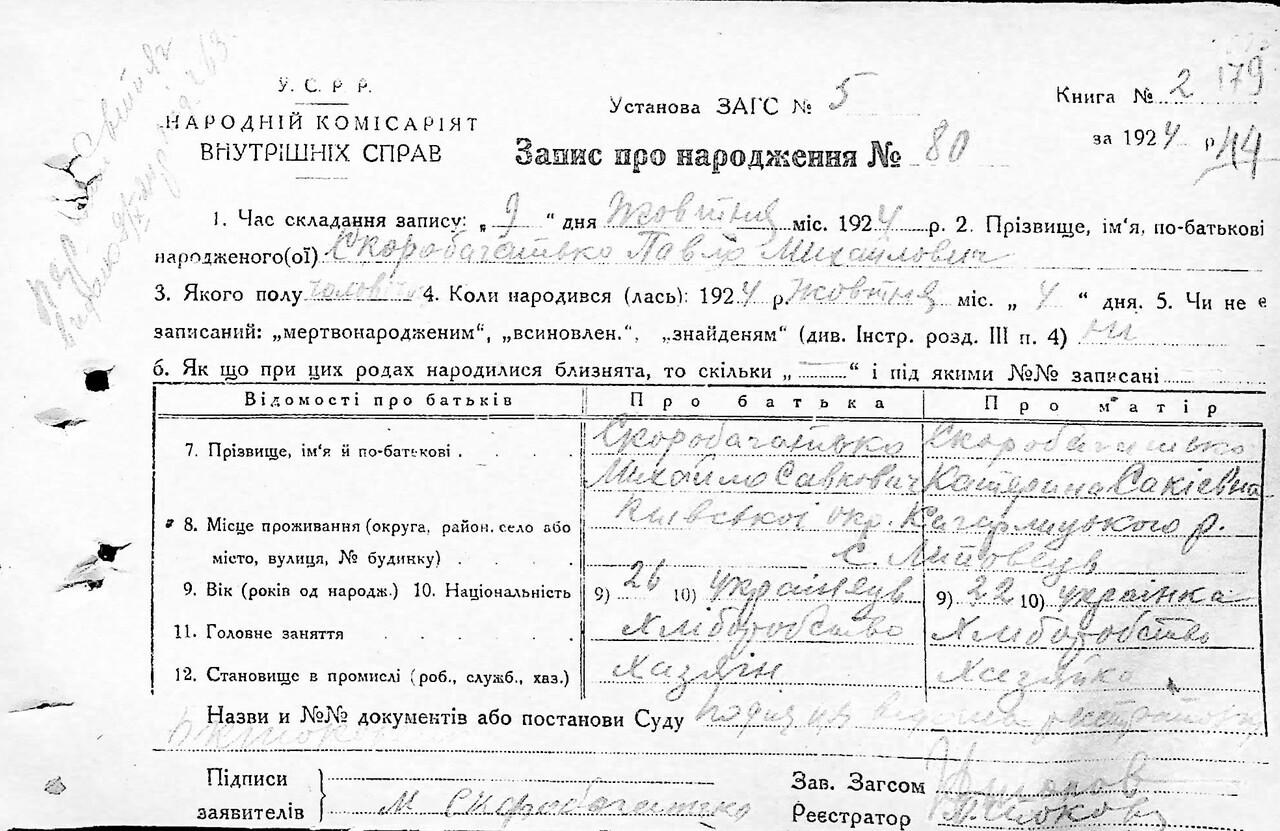 У. С. Р Р.
НАРОДНІЙ КОМІСАРІЯТ
ВНУТРІШНІХ СПРАВ
Установа ЗАГС № 5
Книга № 2 179
за 1924 р. 44
Запис про народження № 80
1. Час складання запису: „ 9 “ дня Жовтня міс. 1924 р. 2. Прізвище, ім‘я, по-батькові
народженого(ої) Скоробагатько Павло Михайлович
3. Якого полу чоловічо 4. Коли народився (лась): 1924 р Жовтня міс. „ 4 “ дня. 5. Чи не є
записаний: „мертвонародженим“, „всиновлен.“, „знайденям“ (див. Інстр. розд. III п. 4) ні
6. Як що при цих родах народилися близнята, то скільки „ — “ і під якими №№ записані
Відомості про батьків Про батька Про матір
7. Прізвище, ім‘я й по-батькові . Скоробагатько Скоробагатько
Михайло Савкович Катерина Сакієвна
8. Місце проживання (округа, район, село або Київської окр. Кагарлицького р.
місто, вулиця, № будинку) с. Липовець
9. Вік (років од народж.) 10. Національність 9) 26 10) українець 9) 22 10) українка
11. Головне заняття Хліборобство Хліборобство
12. Становище в промислі (роб., служб., хаз.) Хазяїн Хазяйка
Назви и №№ документів або постанови Суду
Підписи
заявителів М Скоробагатько
Зав. Загсом
Реєстратор